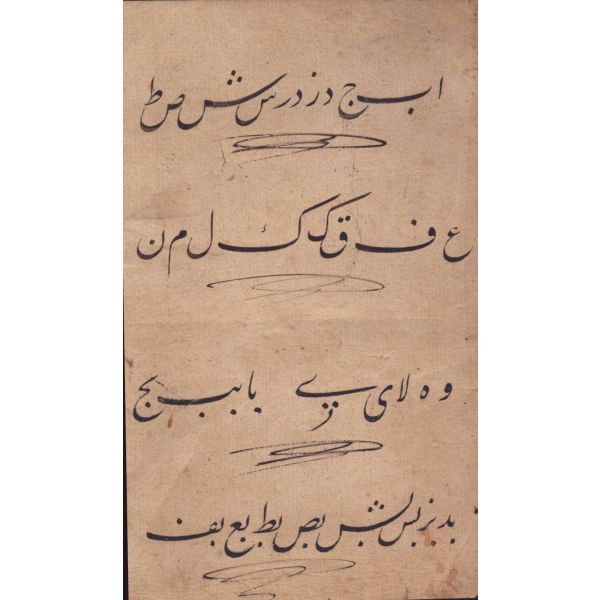 ا ب ج د ز د ر س ش ص ط
ع ف ق ک ك ل م ن
و ه لا ی ے با بب بج
بد بز بس بش بص بط بع بف